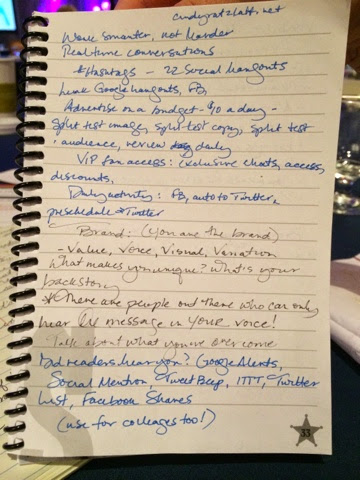 cindyratzlaff.net
Work smarter, not harder
Realtime conversations
#Hashtags - 22 Social hangouts
Google hangouts, FB,
Advertise on a budget - $10 a day -
split test image, split test copy, split test
audience, review daily
VIP fan access: (exclusive chats, access,
discounts,
Daily activity: FB, auto to Twitter,
preschedule Twitter
Brand: (You are the brand)
- Value, voice, visual, variation
What makes you unique? What's your
backstory
* There are people out there who can only
hear the message in YOUR voice!
Talk about what you've overcome
readers hear you? (Google Alerts,
Social Mention, TweetBeep, IFTTT, Twitter
List, Facebook Shares
(use for colleages too!)
33